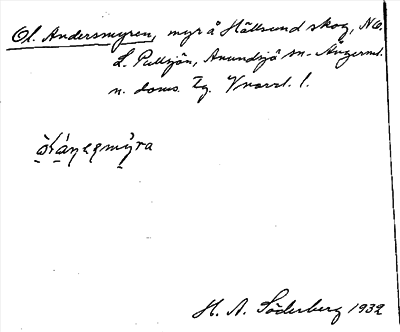 Ol. Andersmyren, myr å Hällsund skog, NO.
L. Pullsjön, Anundsjö sn. Ångerml.
n. doms. Zg.
H. A. Söderberg 1932